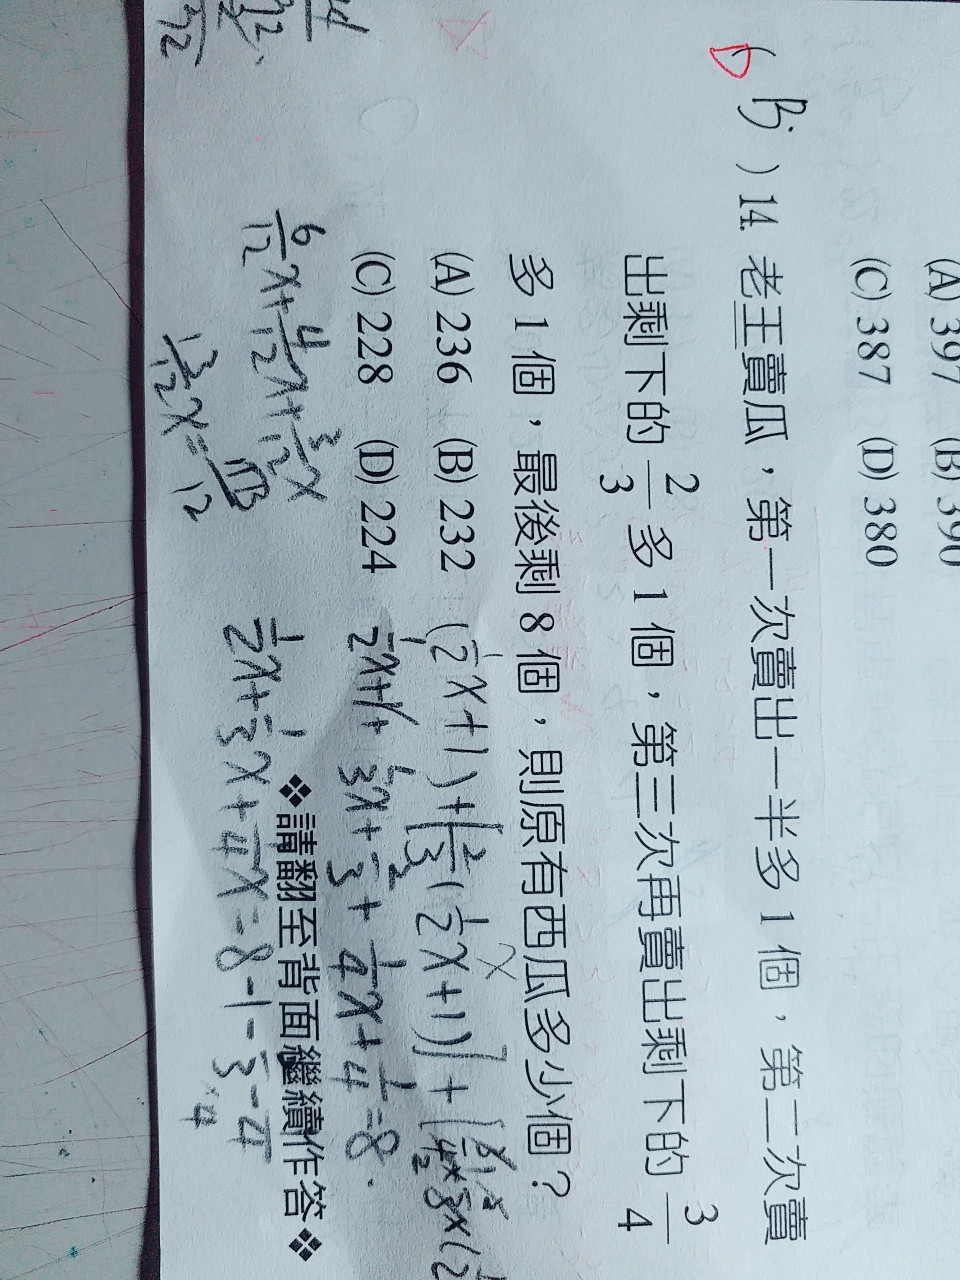 (A) 397 (B) 390
(C) 387 (D) 380
( B ) 14. 老王賣瓜，第一次賣出一半多 1 個，第二次賣
出剩下的 2/3 多 1 個，第三次再賣出剩下的 3/4
多 1 個，最後剩 8 個，則原有西瓜多少個？
(A) 236 (B) 232
(C) 228 (D) 224
(1/2x+1)+[2/3(1/2x+1)]+
1/2x+1+1/3x+2/3+1/4x+1/4=8
❖請翻至背面繼續作答❖
6/12x+4/12x+3/12x
1/2x+1/3x+1/4x=8-1-
13/12x=